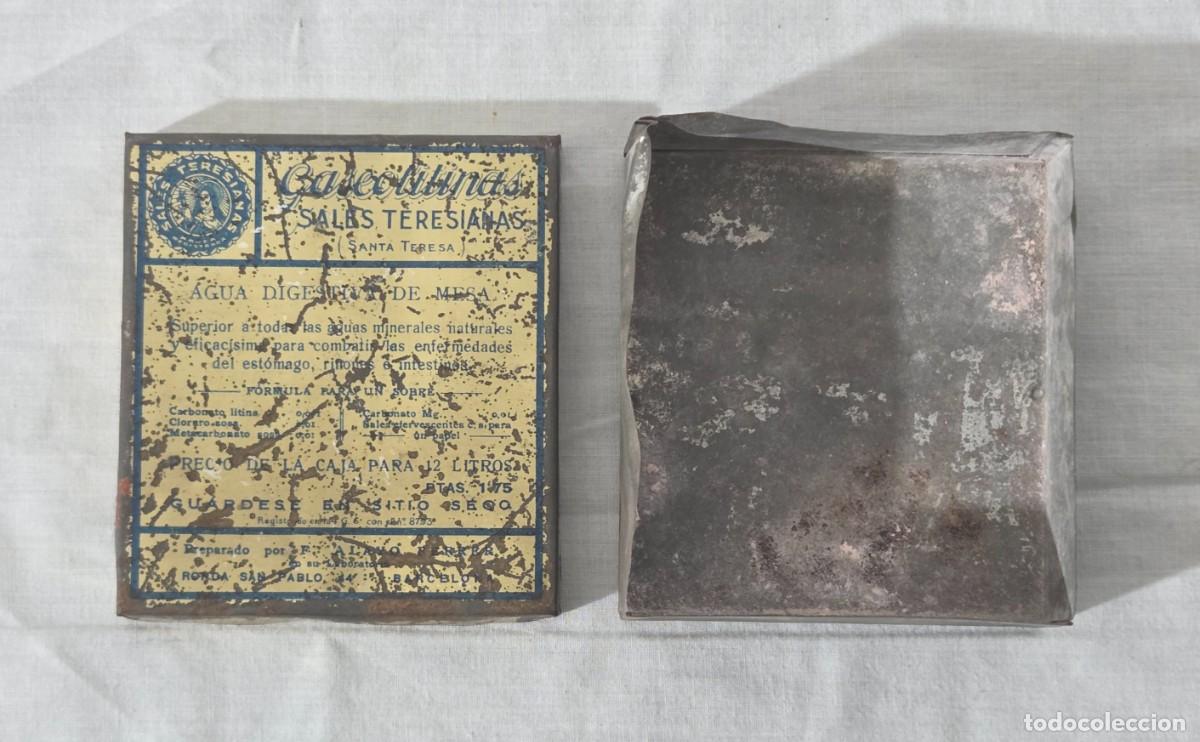 SALES TERESIANAS
Gaseolitinas
SALES TERESIANAS
(SANTA TERESA)
AGUA DIGESTIVA DE MESA
Superior a todas las aguas minerales naturales
y eficacísima para combatir las enfermedades
del estómago, riñones é intestinos
FORMULA PARA UN SOBRE
Carbonato litina
Carbonato Mg. 0,01
Cloruro sosa 0,02
Sales efervescentes c. s. para
Metacarbonato sosa 0,01
un papel
PRECIO DE LA CAJA PARA 12 LITROS
PTAS. 1.75
GUARDESE EN SITIO SECO
Registrado en la I. G. S. con el nº 8793
Preparado por F. ALAMO FERRER
en su Laboratorio
RONDA SAN PABLO, 44 BARCELONA
todocoleccion